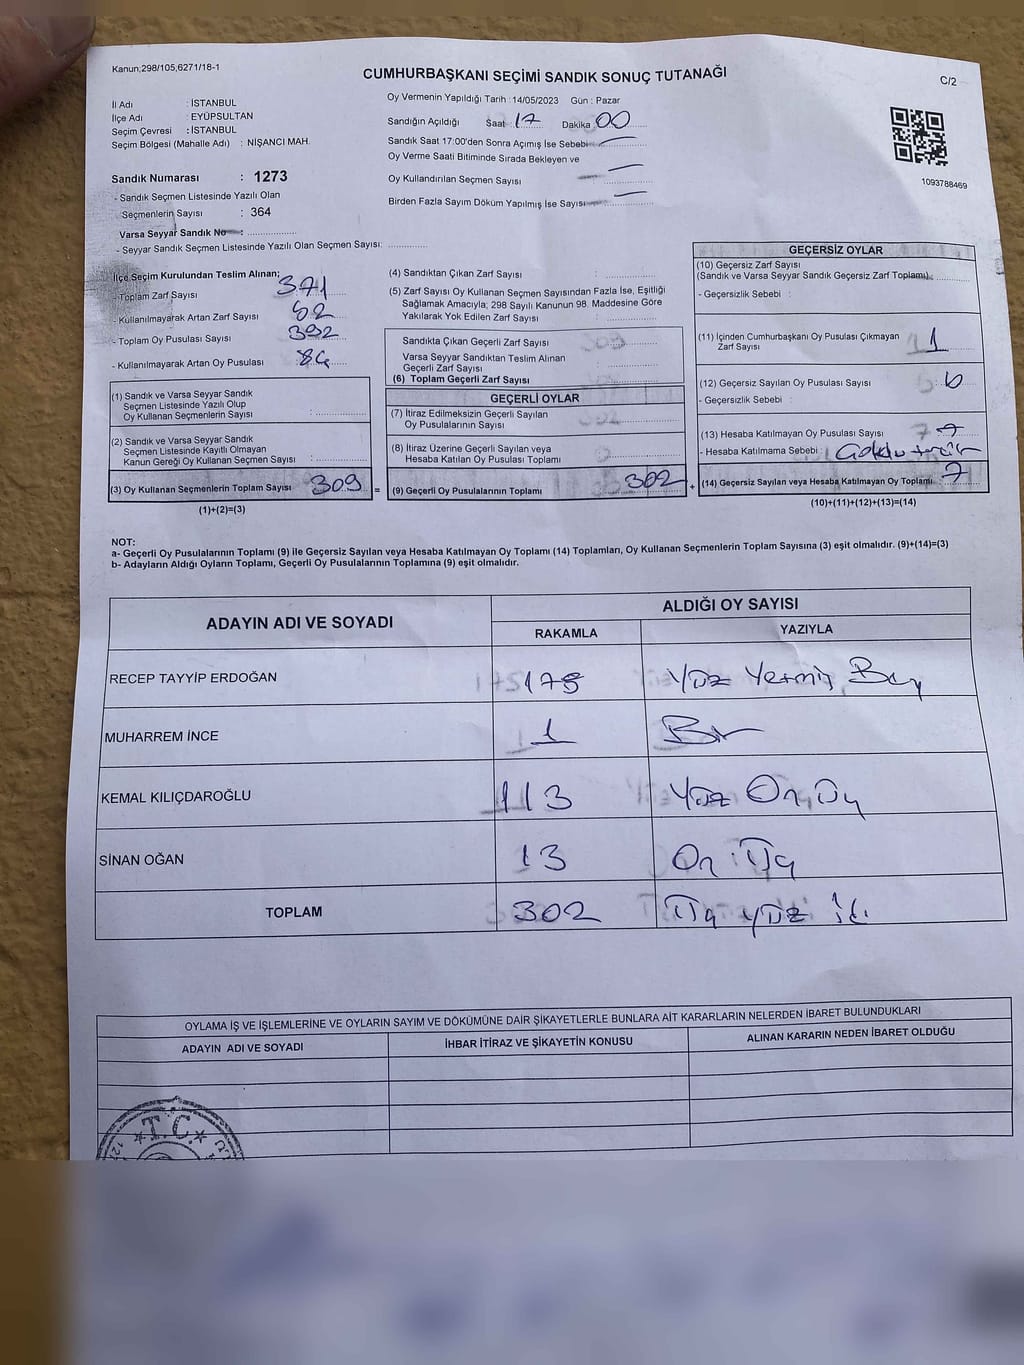 Kanun;298/105,6271/18-1
CUMHURBAŞKANI SEÇİMİ SANDIK SONUÇ TUTANAĞI
C/2
İl Adı : İSTANBUL
İlçe Adı : EYÜPSULTAN
Seçim Çevresi : İSTANBUL
Seçim Bölgesi (Mahalle Adı) : NİŞANCI MAH.
Oy Vermenin Yapıldığı Tarih : 14/05/2023 Gün : Pazar
Sandığın Açıldığı Saat : 17 Dakika : 00
Sandık Saat 17:00'den Sonra Açımış İse Sebebi
Oy Verme Saati Bitiminde Sırada Bekleyen ve
Oy Kullandırılan Seçmen Sayısı
Birden Fazla Sayım Döküm Yapılmış İse Sayısı
1093788469
Sandık Numarası : 1273
- Sandık Seçmen Listesinde Yazılı Olan
Seçmenlerin Sayısı : 364
Varsa Seyyar Sandık No :
- Seyyar Sandık Seçmen Listesinde Yazılı Olan Seçmen Sayısı:
İlçe Seçim Kurulundan Teslim Alınan;
- Toplam Zarf Sayısı 371
- Kullanılmayarak Artan Zarf Sayısı 62
- Toplam Oy Pusulası Sayısı 392
- Kullanılmayarak Artan Oy Pusulası
(1) Sandık ve Varsa Seyyar Sandık
Seçmen Listesinde Yazılı Olup
Oy Kullanan Seçmenlerin Sayısı :
(2) Sandık ve Varsa Seyyar Sandık
Seçmen Listesinde Kayıtlı Olmayan
Kanun Gereği Oy Kullanan Seçmen Sayısı :
(3) Oy Kullanan Seçmenlerin Toplam Sayısı 309
(1)+(2)=(3)
(4) Sandıktan Çıkan Zarf Sayısı :
(5) Zarf Sayısı Oy Kullanan Seçmen Sayısından Fazla İse, Eşitliği
Sağlamak Amacıyla; 298 Sayılı Kanunun 98. Maddesine Göre
Yakılarak Yok Edilen Zarf Sayısı :
Sandıkta Çıkan Geçerli Zarf Sayısı
Varsa Seyyar Sandıktan Teslim Alınan
Geçerli Zarf Sayısı
(6) Toplam Geçerli Zarf Sayısı
GEÇERLİ OYLAR
(7) İtiraz Edilmeksizin Geçerli Sayılan
Oy Pusulalarının Sayısı
(8) İtiraz Üzerine Geçerli Sayılan veya
Hesaba Katılan Oy Pusulası Toplamı
= (9) Geçerli Oy Pusulalarının Toplamı 302
GEÇERSİZ OYLAR
(10) Geçersiz Zarf Sayısı
(Sandık ve Varsa Seyyar Sandık Geçersiz Zarf Toplamı)
- Geçersizlik Sebebi :
(11) İçinden Cumhurbaşkanı Oy Pusulası Çıkmayan
Zarf Sayısı 1
(12) Geçersiz Sayılan Oy Pusulası Sayısı
- Geçersizlik Sebebi :
(13) Hesaba Katılmayan Oy Pusulası Sayısı 7
- Hesaba Katılmama Sebebi :
+ (14) Geçersiz Sayılan veya Hesaba Katılmayan Oy Toplamı : 7
(10)+(11)+(12)+(13)=(14)
NOT:
a- Geçerli Oy Pusulalarının Toplamı (9) ile Geçersiz Sayılan veya Hesaba Katılmayan Oy Toplamı (14) Toplamları, Oy Kullanan Seçmenlerin Toplam Sayısına (3) eşit olmalıdır. (9)+(14)=(3)
b- Adayların Aldığı Oyların Toplamı, Geçerli Oy Pusulalarının Toplamına (9) eşit olmalıdır.
ADAYIN ADI VE SOYADI
ALDIĞI OY SAYISI
RAKAMLA YAZIYLA
RECEP TAYYİP ERDOĞAN 175 Yüz Yetmiş Beş
MUHARREM İNCE 1 Bir
KEMAL KILIÇDAROĞLU 113 Yüz On Üç
SİNAN OĞAN 13 On Üç
TOPLAM 302 Üç yüz iki
OYLAMA İŞ VE İŞLEMLERİNE VE OYLARIN SAYIM VE DÖKÜMÜNE DAİR ŞİKAYETLERLE BUNLARA AİT KARARLARIN NELERDEN İBARET BULUNDUKLARI
ADAYIN ADI VE SOYADI İHBAR İTİRAZ VE ŞİKAYETİN KONUSU ALINAN KARARIN NEDEN İBARET OLDUĞU
T.C.